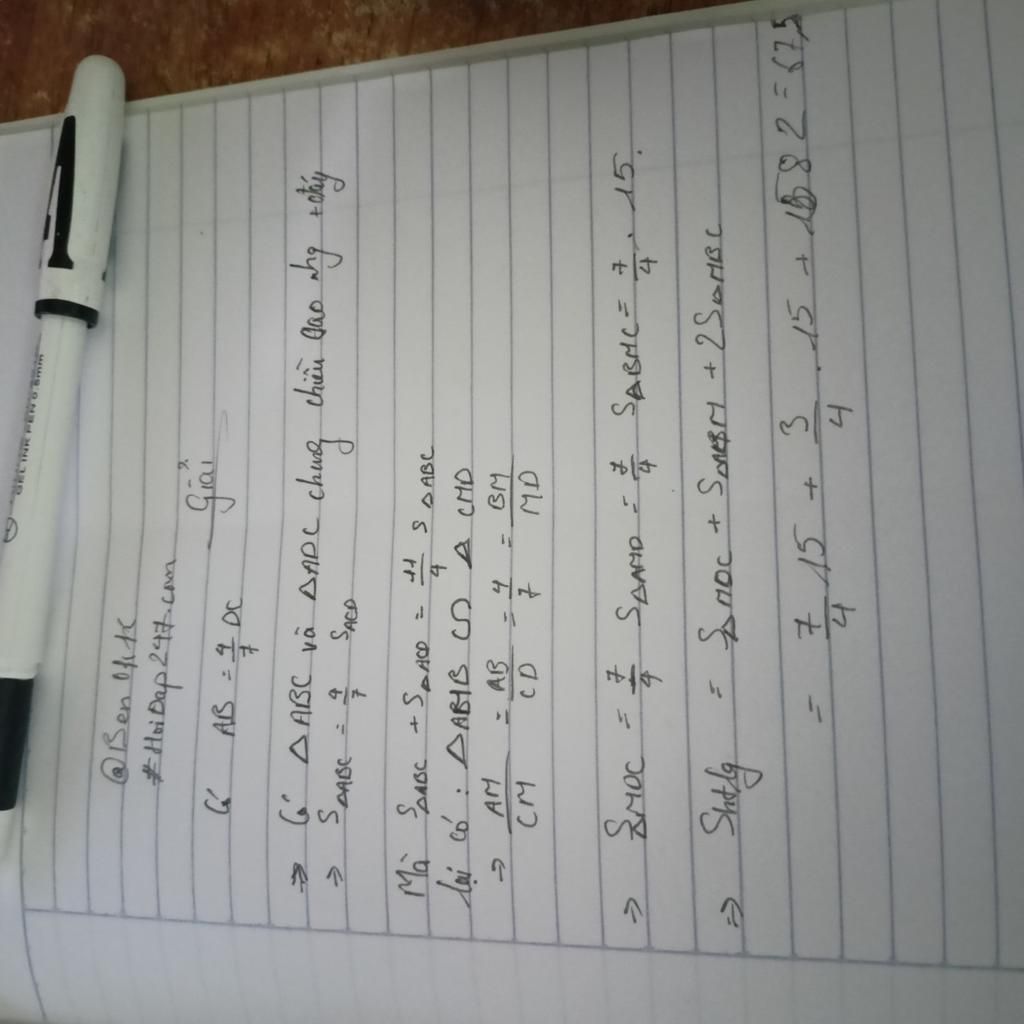 GEL INK PEN 0.5mm
@Ben
#HoiDap247.com
Giải
Có AB = 4/7 DC
⇒ Có ΔABC và ΔADC chung chiều cao nhg + đáy
⇒ SΔABC = 4/7 SACD
Mà SΔABC + SΔACD = 11/4 SΔABC
lại có : ΔAMB ∽ Δ CMD
⇒ AM/CM = AB/CD = 4/7 = BM/MD
⇒ SMDC = 7/4 SΔAMD = 7/4 SΔBMC = 7/4 . 15.
⇒ Shtg = SMDC + SABM + 2SΔMBC
= 7/4 . 15 + 3/4 . 15 + 2 = 67,5